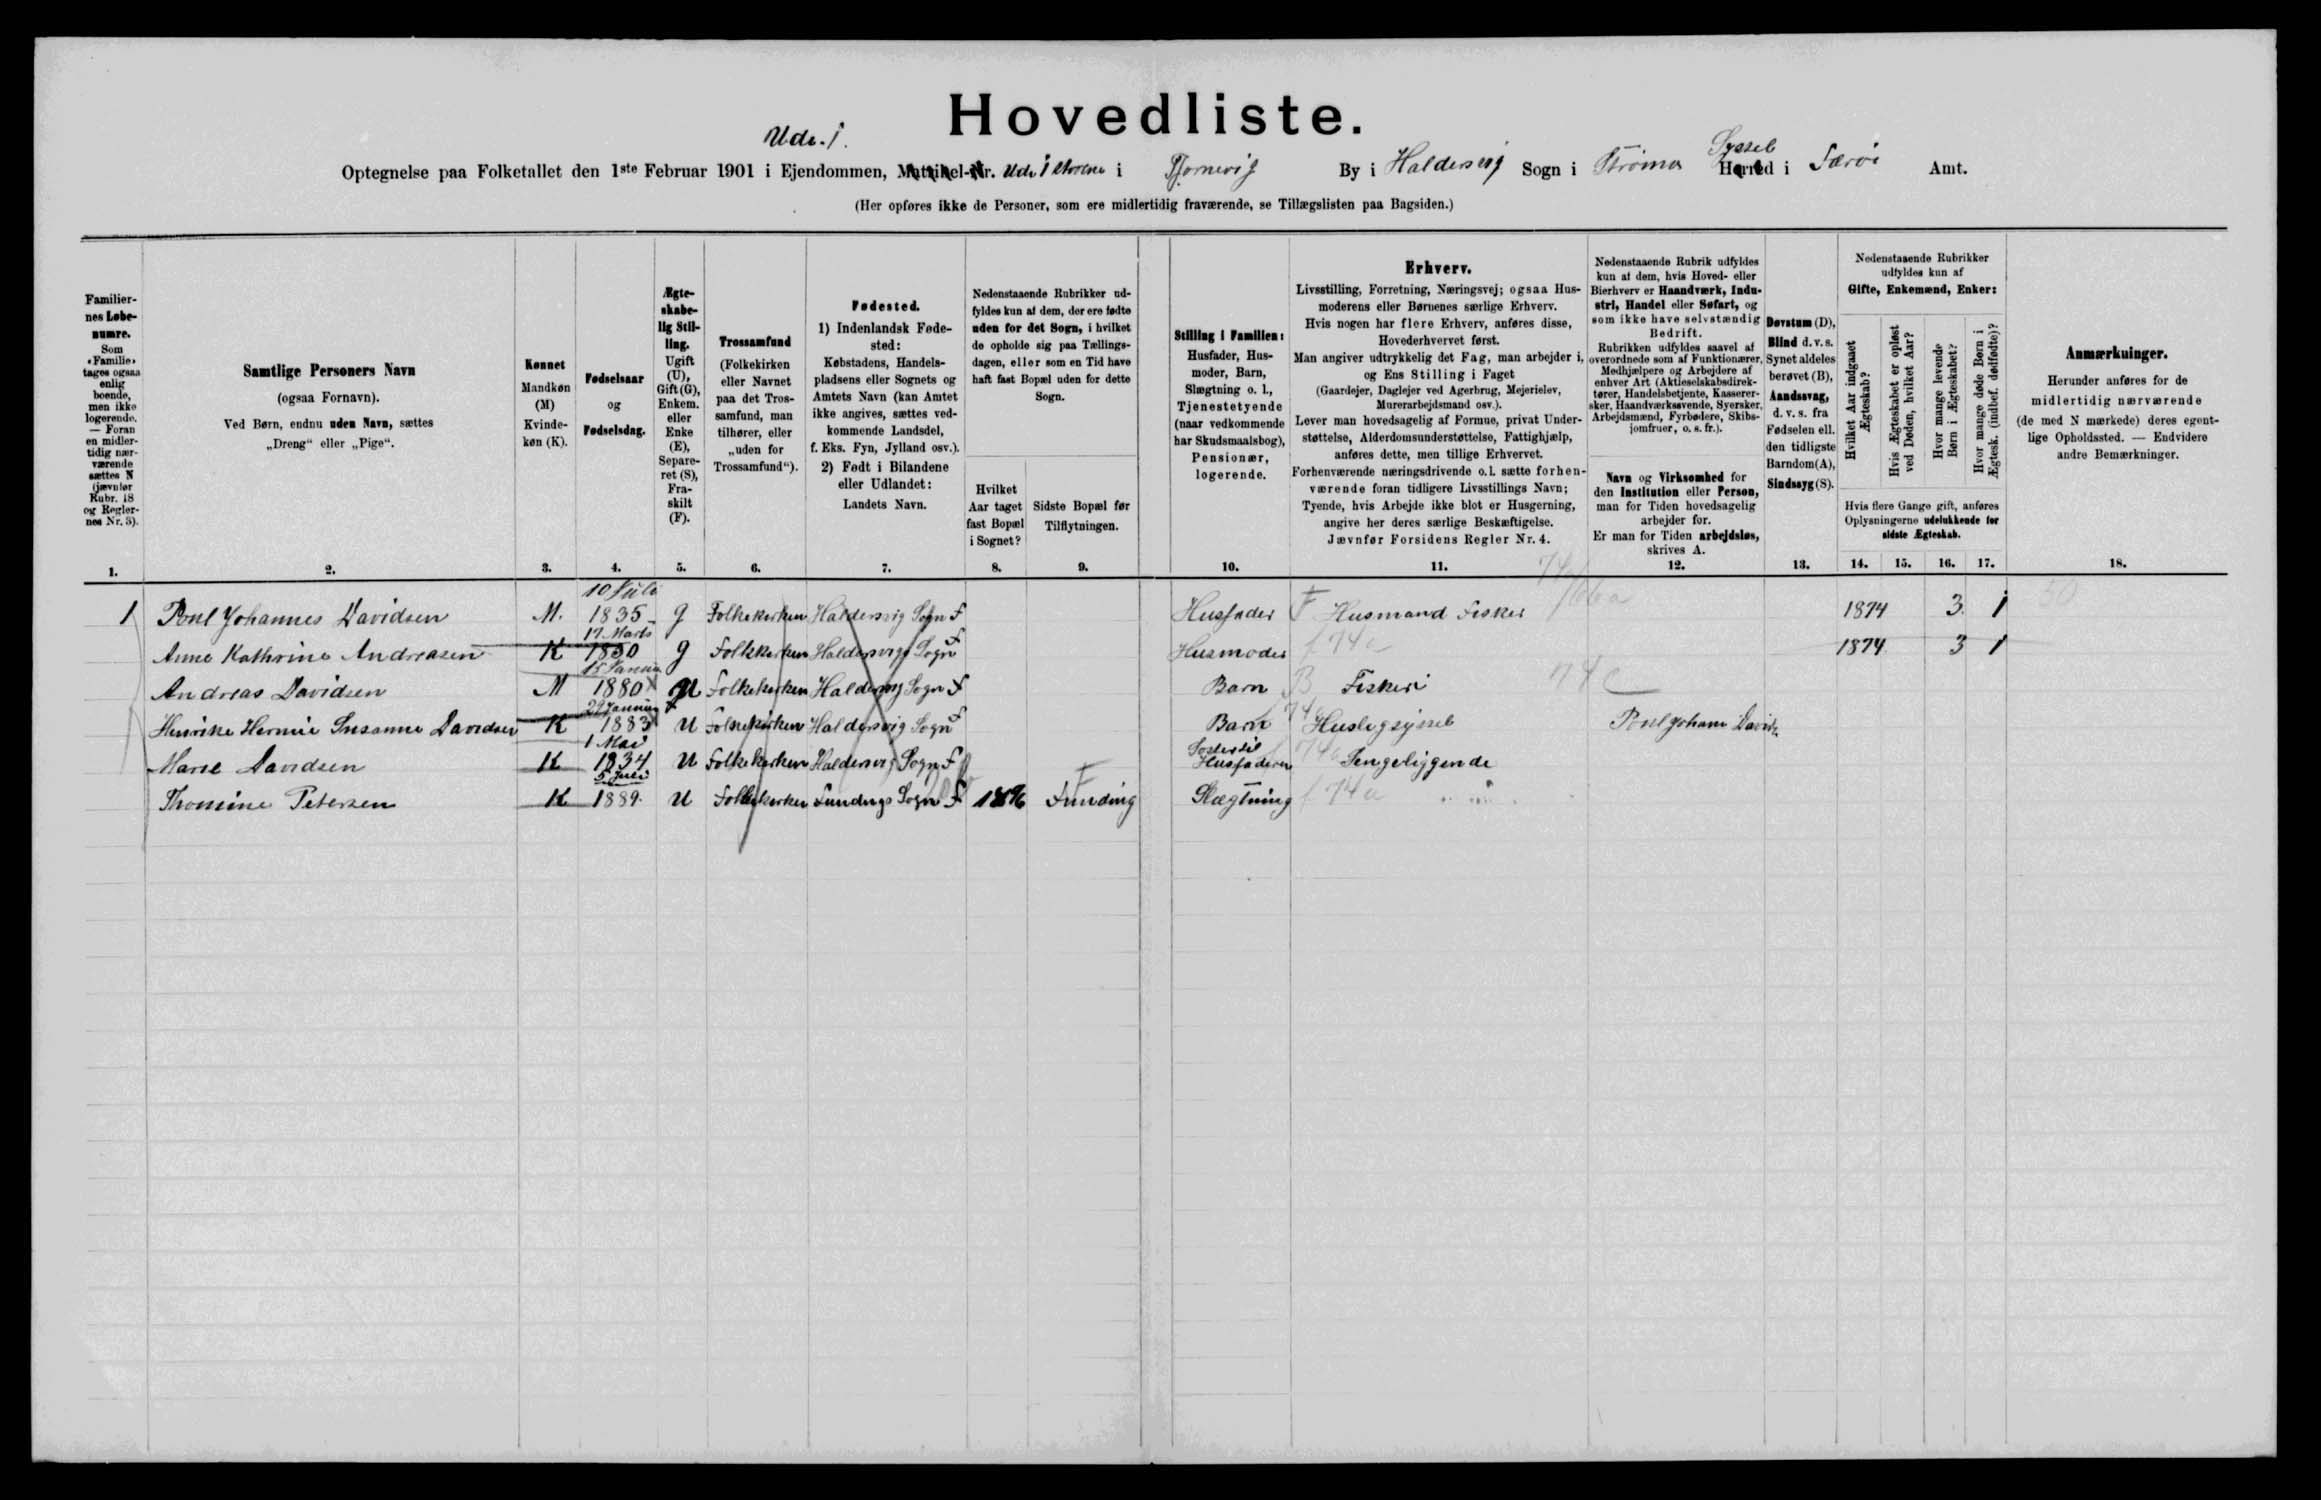 Hovedliste.
Ude. i.
Optegnelse paa Folketallet den 1ste Februar 1901 i Ejendommen, Matrikel-Nr. Ude i i Tjørnevig By i Haldersvig Sogn i Strømø Syssel Herred i Færøe Amt.
(Her opføres ikke de Personer, som ere midlertidig fraværende, se Tillægslisten paa Bagsiden.)
Familiernes Løbenumre.
Som «Familie» tages ogsaa enlig boende, men ikke logerende. — Foran en midlertidig nærværende sættes N (jævnfør Rubr. 18 og Reglernes Nr. 3).
Samtlige Personers Navn
(ogsaa Fornavn).
Ved Børn, endnu uden Navn, sættes
„Dreng“ eller „Pige“.
Kønnet
Mandkøn (M)
Kvindekøn (K).
Fødselsaar
og
Fødselsdag.
Ægteskabelig Stilling.
Ugift (U), Gift (G), Enkem. eller Enke (E), Separeret (S), Fraskilt (F).
Trossamfund
(Folkekirken eller Navnet paa det Trossamfund, man tilhører, eller „uden for Trossamfund“).
Fødested.
1) Indenlandsk Fødested:
Købstadens, Handelspladsens eller Sognets og Amtets Navn (kan Amtet ikke angives, sættes vedkommende Landsdel, f. Eks. Fyn, Jylland osv.).
2) Født i Bilandene eller Udlandet:
Landets Navn.
Nedenstaaende Rubrikker udfyldes kun af dem, der ere fødte uden for det Sogn, i hvilket de opholde sig paa Tællingsdagen, eller som en Tid have haft fast Bopæl uden for dette Sogn.
Hvilket Aar taget fast Bopæl i Sognet?
Sidste Bopæl før Tilflytningen.
Stilling i Familien:
Husfader, Husmoder, Barn, Slægtning o. l., Tjenestetyende (naar vedkommende har Skudsmaalsbog), Pensionær, logerende.
Erhverv.
Livsstilling, Forretning, Næringsvej; ogsaa Husmoderens eller Børnenes særlige Erhverv.
Hvis nogen har flere Erhverv, anføres disse, Hovederhvervet først.
Man angiver udtrykkelig det Fag, man arbejder i, og Ens Stilling i Faget
(Gaardejer, Daglejer ved Agerbrug, Mejerielev, Murerarbejdsmand osv.).
Lever man hovedsagelig af Formue, privat Understøttelse, Alderdomsunderstøttelse, Fattighjælp, anføres dette, men tillige Erhvervet.
Forhenværende næringsdrivende o. l. sætte forhenværende foran tidligere Livsstillings Navn; Tyende, hvis Arbejde ikke blot er Husgerning, angive her deres særlige Beskæftigelse.
Jævnfør Forsidens Regler Nr. 4.
Nedenstaaende Rubrik udfyldes kun af dem, hvis Hoved- eller Bierhverv er Haandværk, Industri, Handel eller Søfart, og som ikke have selvstændig Bedrift.
Rubrikken udfyldes saavel af overordnede som af Funktionærer, Medhjælpere og Arbejdere af enhver Art (Aktieselskabsdirektører, Handelsbetjente, Kasserersker, Haandværkssvende, Syersker, Arbejdsmænd, Fyrbødere, Skibsjomfruer, o. s. fr.).
Navn og Virksomhed for den Institution eller Person, man for Tiden hovedsagelig arbejder for.
Er man for Tiden arbejdsløs, skrives A.
Døvstum (D), Blind d. v. s. Synet aldeles berøvet (B), Aandssvag, d. v. s. fra Fødselen ell. den tidligste Barndom (A), Sindssyg (S).
Nedenstaaende Rubrikker udfyldes kun af
Gifte, Enkemænd, Enker:
Hvilket Aar indgaaet Ægteskab?
Hvis Ægteskabet er opløst ved Døden, hvilket Aar?
Hvor mange levende Børn i Ægteskabet?
Hvor mange døde Børn i Ægtesk. (indbef. dødfødte)?
Hvis flere Gange gift, anføres Oplysningerne udelukkende for sidste Ægteskab.
Anmærkninger.
Herunder anføres for de midlertidig nærværende (de med N mærkede) deres egentlige Opholdssted. — Endvidere andre Bemærkninger.
1. 2. 3. 4. 5. 6. 7. 8. 9. 10. 11. 12. 13. 14. 15. 16. 17. 18.
1 Poul Johannes Davidsen M. 10 Juli 1835 g Folkekirken Haldersvig Sogn F Husfader F Husmand Fisker 1874 3 1
Anne Kathrine Andreasen K 17 Marts 1830 g Folkekirken Haldersvig Sogn F Husmoder f 74a 1874 3 1
Andreas Davidsen M 15 Januar 1880 U Folkekirken Haldersvig Sogn F Barn B Fiskeri 74 c
Henrike Hermie Susanne Davidsen K 29 Januar 1883 U Folkekirken Haldersvig Sogn F Barn 74 Husligsyssel Poul Johann Davids.
Marie Davidsen K 1 Mai 1834 U Folkekirken Haldersvig Sogn F Søster til Husfaderen 74a Sengeliggende
Thomine Petersen K 5 Juli 1889. U Folkekirken Fundings Sogn F 1896 Funding Slægtning f 74a